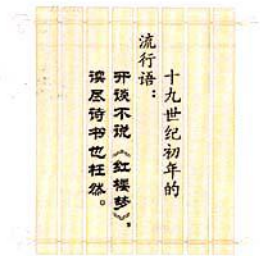 十九世纪初年的
流行语：
开谈不说《红楼梦》，
读尽诗书也枉然。